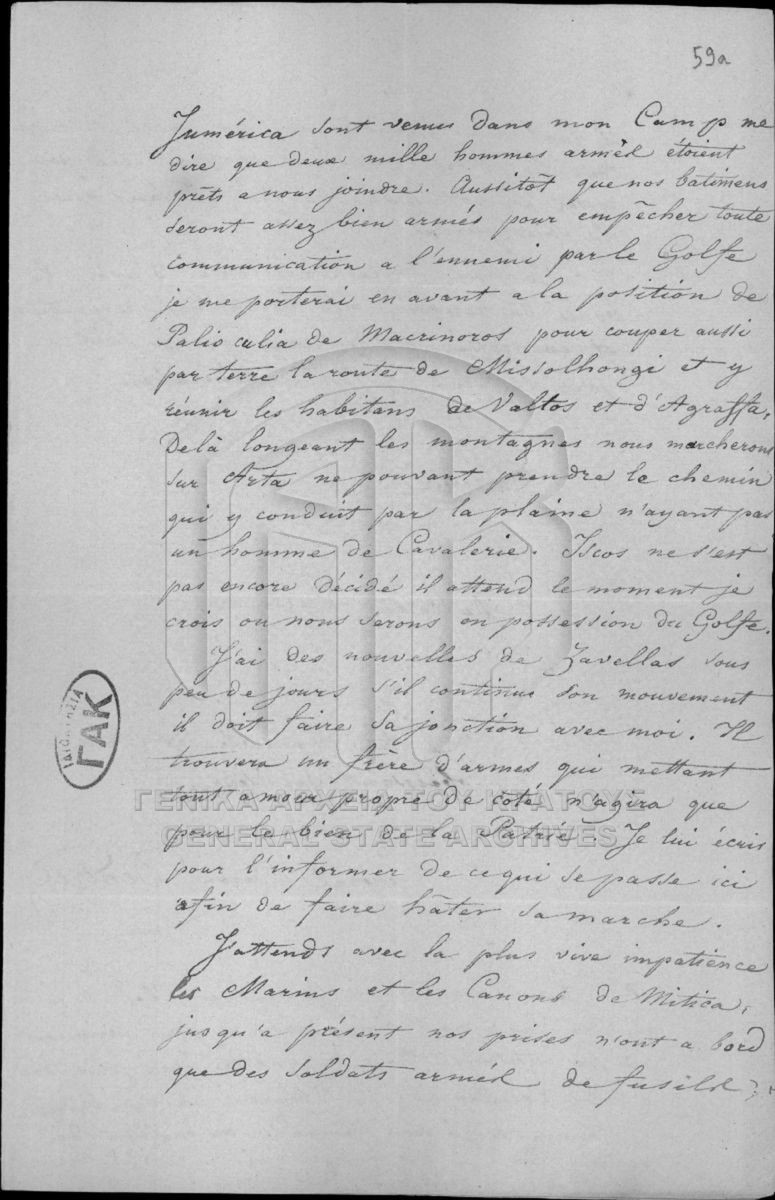 59a
Jumérica sont venus dans mon Camp me
dire que deux mille hommes armés étoient
prêts a nous joindre. Aussitôt que nos batimens
seront assez bien armés pour empêcher toute
communication a l'ennemi par le Golfe
je me porterai en avant a la position de
Palio culia de Macrinoros pour couper aussi
par terre la route de Missolhongi et y
réunir les habitans de Valtos et d'Agraffa,
De là longeant les montagnes nous marcherons
sur Arta ne pouvant prendre le chemin
qui y conduit par la plaine n'ayant pas
un homme de Cavalerie. Iscos ne s'est
pas encore décidé il attend le moment je
crois ou nous serons en possession du Golfe.
J'ai des nouvelles de Zavellas sous
peu de jours s'il continue son mouvement
il doit faire sa jonction avec moi. Il
trouvera un frère d'armes qui mettant
tout amour propre de coté n'agira que
pour le bien de la Patrie. Je lui écris
pour l'informer de ce qui se passe ici
afin de faire hâter sa marche.
J'attends avec la plus vive impatience
les Marins et les Canons de Mitica,
jusqu'a présent nos prises n'ont a bord
que des soldats armés de fusils
ΓΑΚ
ΓΕΝΙΚΑ ΑΡΧΕΙΑ ΤΟΥ ΚΡΑΤΟΥΣ
GENERAL STATE ARCHIVES